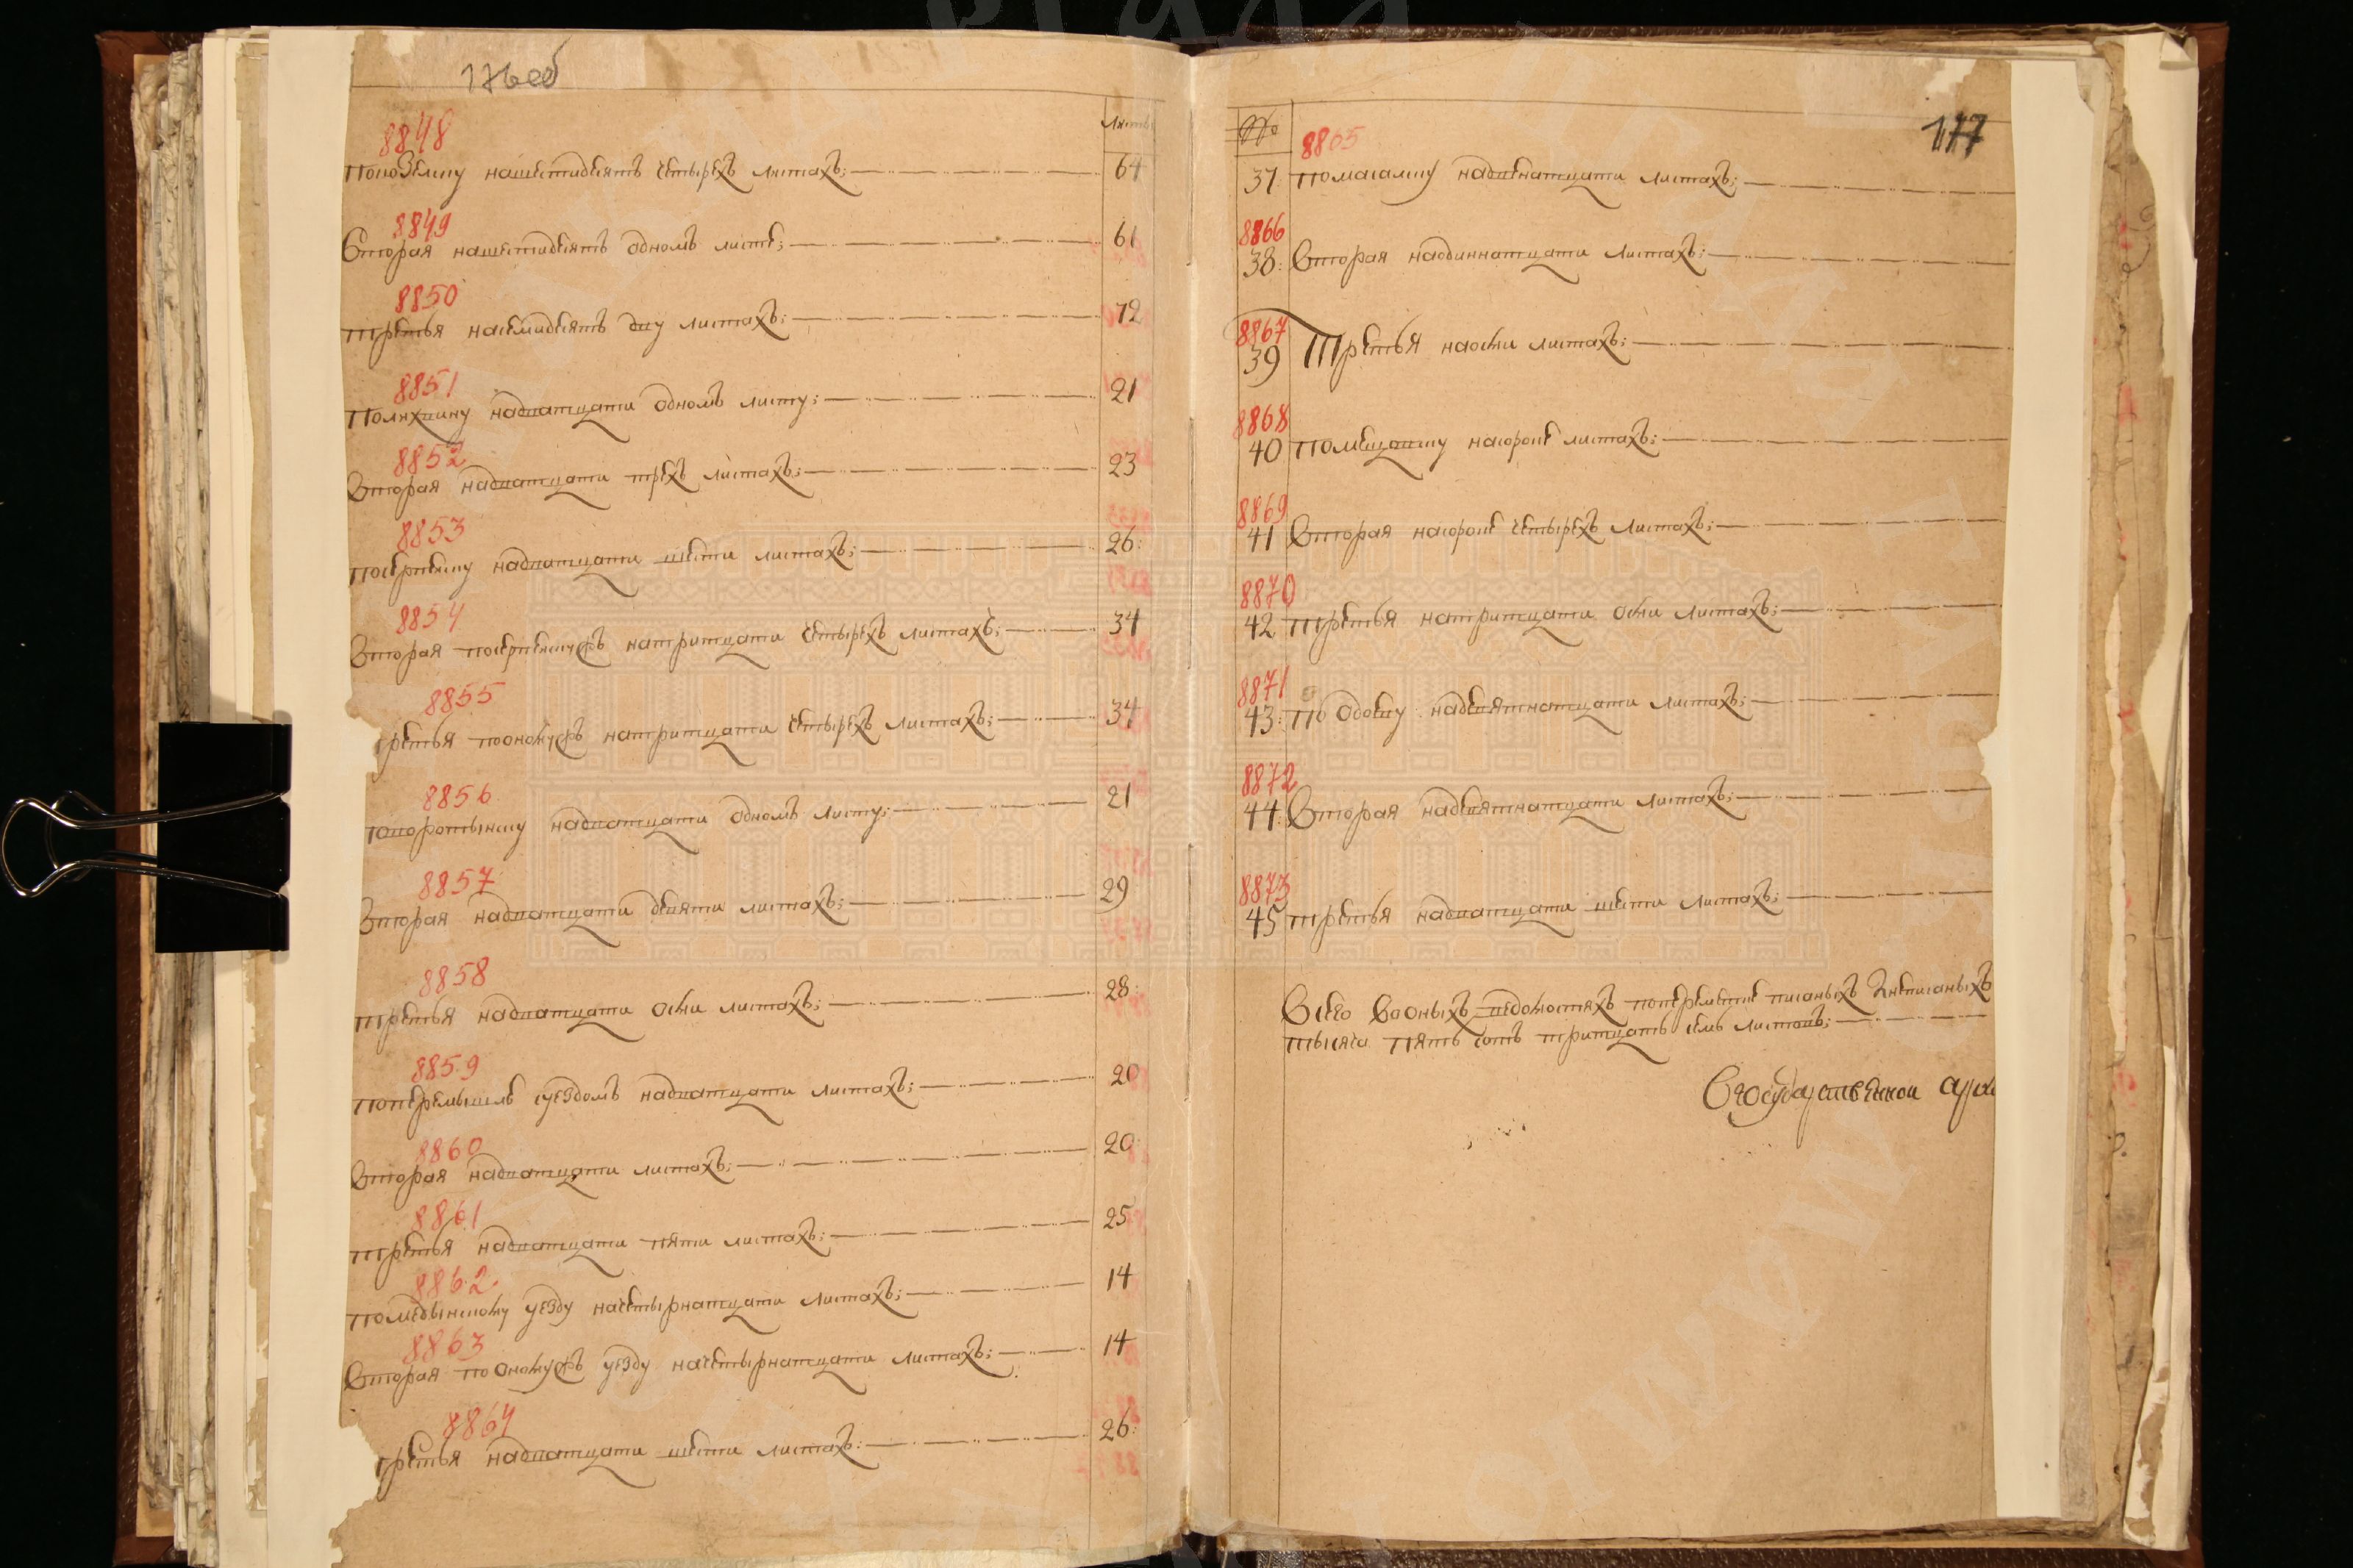 176об
листы
8848
покозелску нашестидесятъ четырехъ листахъ; 64
8849
Вторая нашестидесятъ одномъ листе; 61
8850
третья наседмидесятъ дву листахъ; 72
8851
Полихвину надватцати одномъ листу; 21
8852
Вторая надватцати трехъ листахъ; 23
8853
посерпейску надватцати шести листахъ; 26:
8854
Вторая посерпейскужъ натритцати четырехъ листахъ; 34
8855
третья поономужъ натритцати четырехъ листахъ; 34
8856
поворотынску надватцати одномъ листу; 21
8857
Вторая надватцати девяти листахъ; 29
8858
третья надватцати осми листахъ; 28:
8859
поперемышлю суездомъ надватцати листахъ; 20
8860
Вторая надватцати листахъ; 20:
8861
третья надватцати пяти листахъ; 25
8862.
помедынскому уезду начетырнатцати листахъ; 14
8863
Вторая по ономужъ уезду начетырнатцати листахъ; 14
8864
третья надватцати шести листахъ: 26:
177
№
8865
37: помасалску надвенатцати листахъ;
8866
38: Вторая наодиннатцати листахъ;
8867
39 Третья наосми листахъ;
8868
40 помещовску насороке листахъ;
8869
41 Вторая насороке четырехъ листахъ;
8870
42 третья натритцати осми листахъ;
8871
43: по Одоеву надевятнатцати листахъ;
8872
44: Вторая надевятнатцати листахъ;
8873
45 третья надватцати шести листахъ;
Всего Вооныхъ ведомостяхъ поперемете писаныхъ Инеписаныхъ
тысяча пять сотъ тритцать семь листовъ;
Вгосударственной архи
www